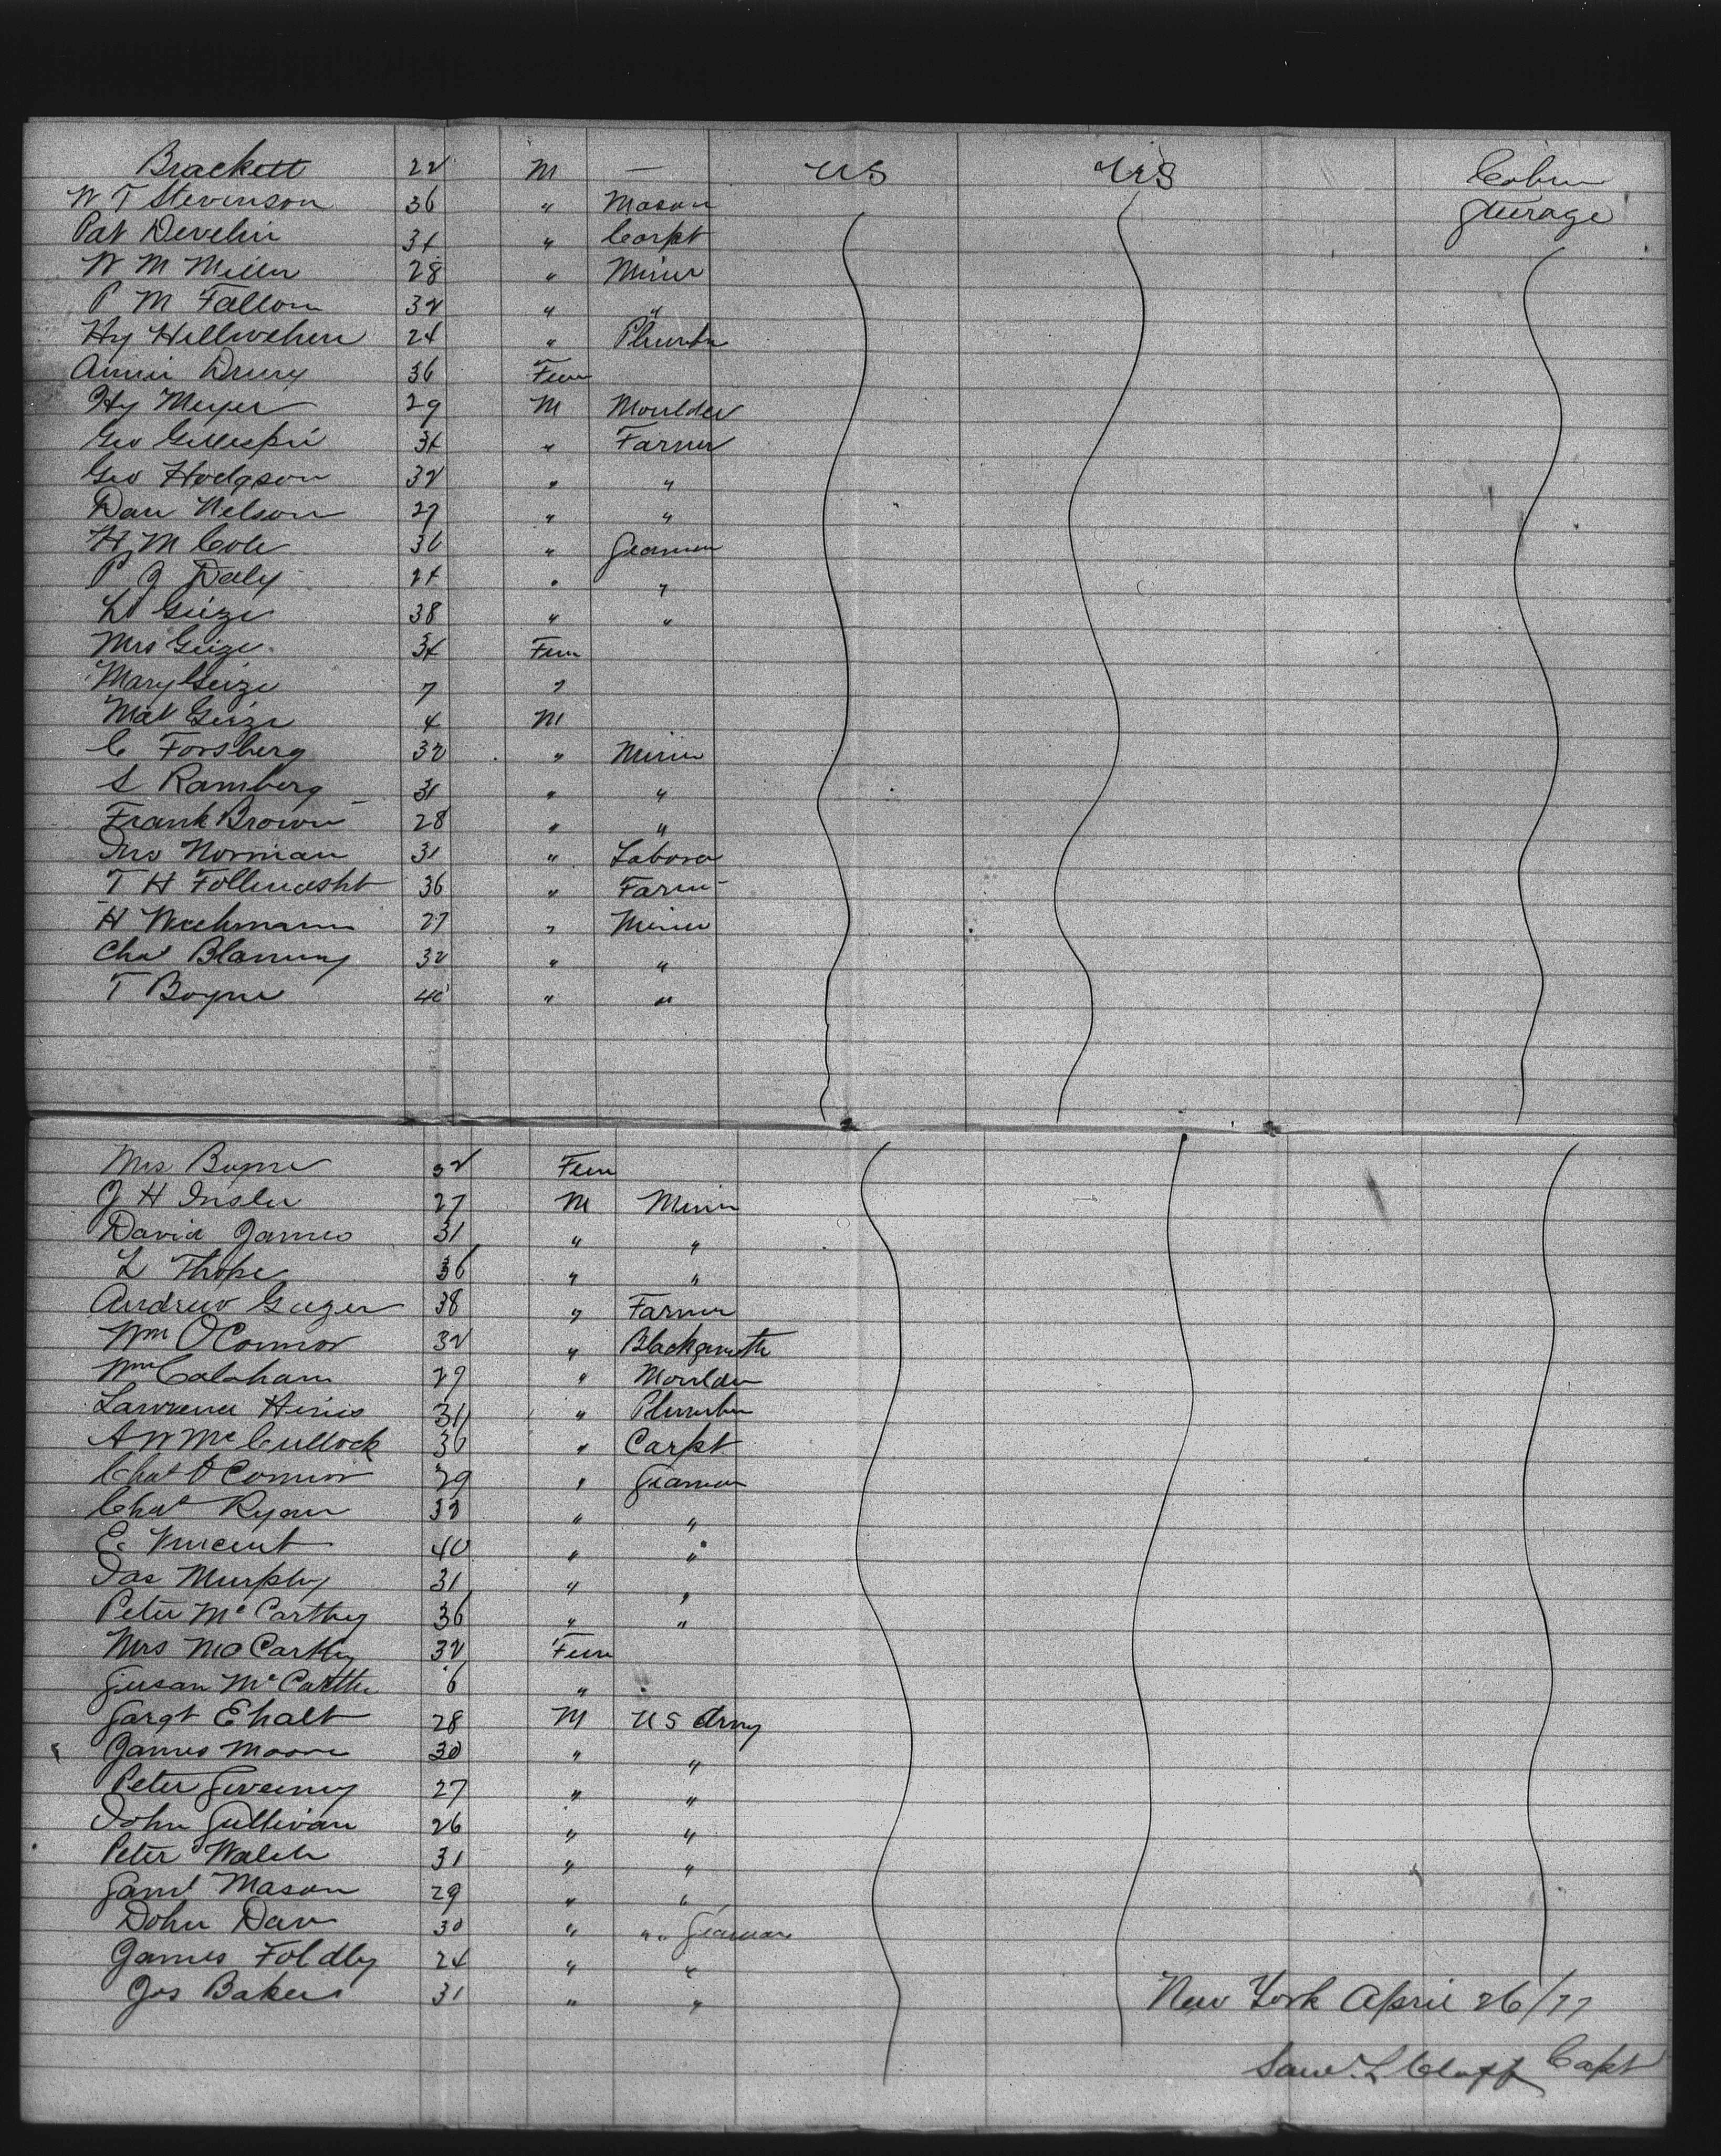 Brackett 22 M — US US Cabin
W T Stevenson 36 " Mason Steerage
Pat Develin 34 " Carpt
W M Miller 28 " Miner
P M Fallon 32 " "
Hy 24 " Plumber
Annie Drury 36 Fem
Hy Meyer 29 M Moulder
Geo Gillespie 34 " Farmer
Geo Hodgson 32 " "
Dan Nelson 27 " "
H M Cole 36 " Seaman
P J Daly 24 " "
L Geize 38 " "
Mrs Geize 34 Fem
Mary Geize 7 "
Mat Geize 4 M
C Forsberg 32 " Miner
S Ramberg 31 " "
Frank Brown 28 " "
Jno Norman 31 " Labora
T H 36 " Farm
H Wechmann 27 " Miner
Chas Blanning 32 " "
T Boyne 40 " "
Mrs Boyne 32 Fem
J H Insler 27 M Miner
David James 31 " "
L Thope 36 " "
Andrew Geezer 38 " Farmer
Wm O'Connor 32 " Blacksmith
Wm Calaham 29 " Moulder
Lawrence Hines 31 " Plumber
A W McCullock 36 " Carpt
Chas O'Connor 29 " Seaman
Chas Ryan 32 " "
E Vincent 40 " "
Jas Murphy 31 " "
Peter McCarthy 36 " "
Mrs McCarthy 32 Fem
Susan McCarthy 6 "
Sargt Ehalt 28 M US Army
James Moore 30 " "
Peter Sweeney 27 " "
John Sullivan 26 " "
Peter Walsh 31 " "
Saml Mason 29 " "
John Dav 30 " " Seaman
James Foldby 24 " "
Jos Baker 31 " " New York April 26/77
Saml L Clapp Capt